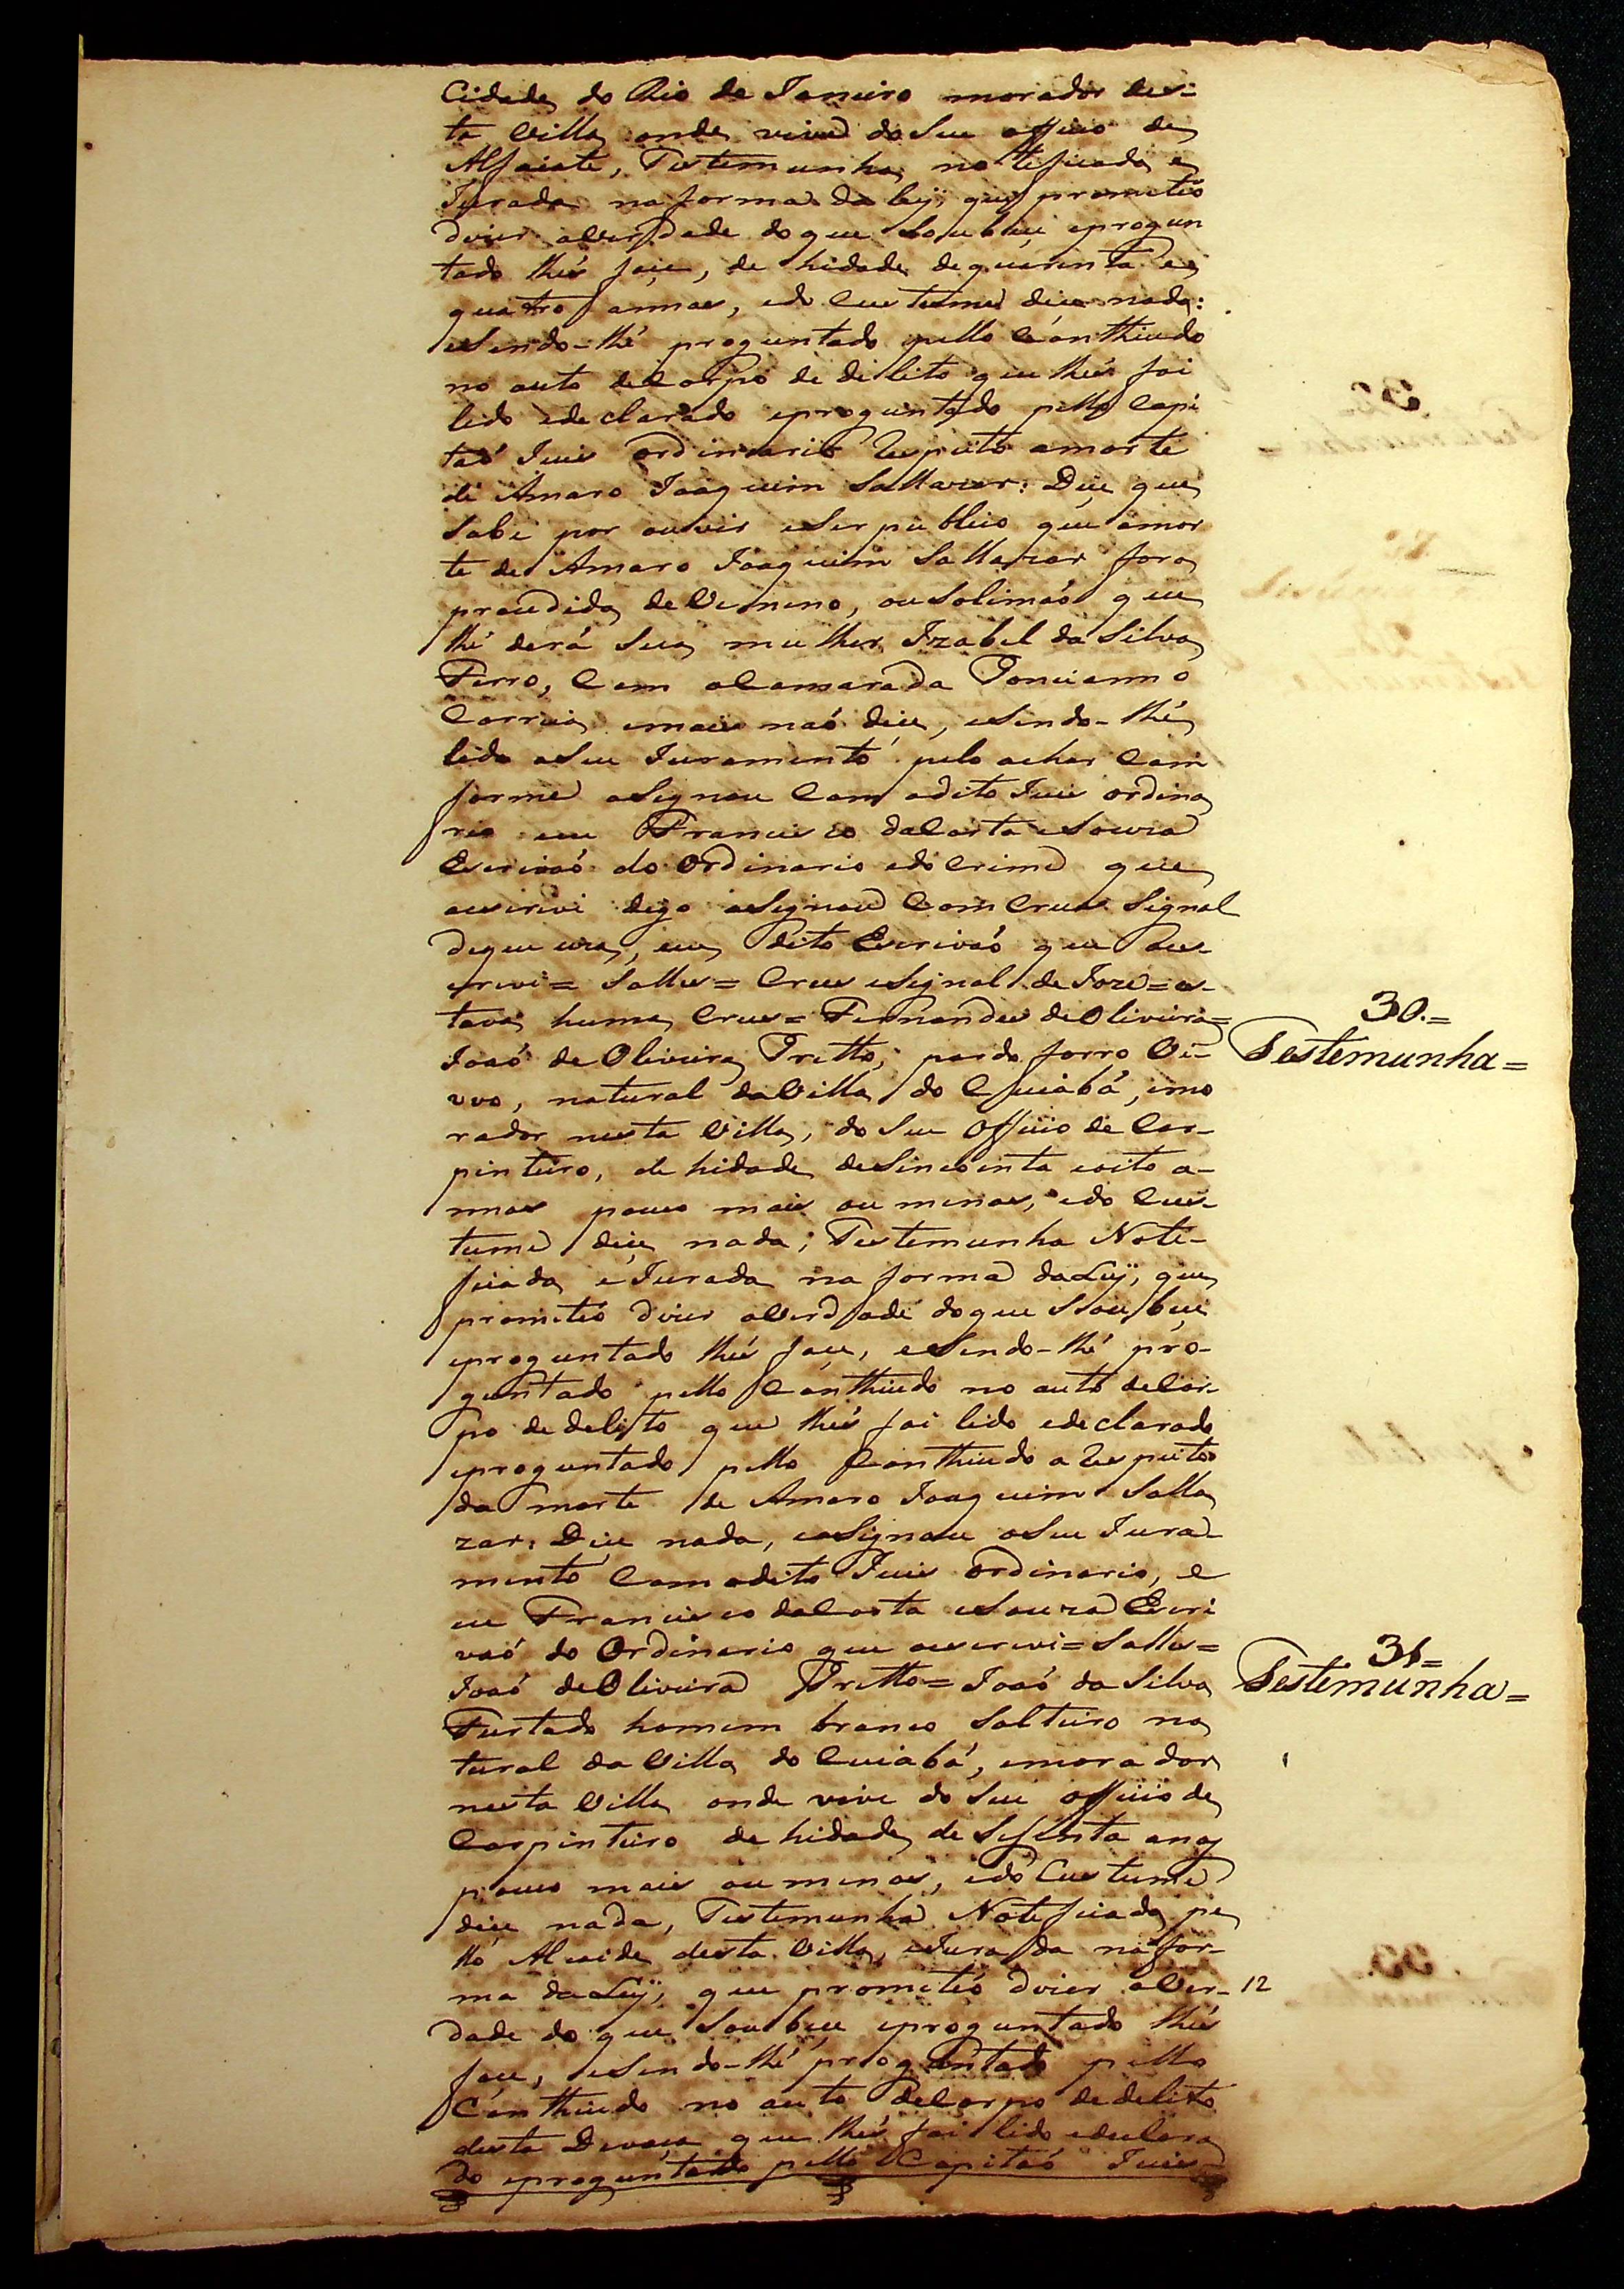 Cidade do Rio de Janeiro morador des-
ta Villa onde vive do Seu officio de
Alfaiate, Testemunha notificada e
Jurada na forma da Ley, que prometeo
dizer averdade do que Soubece eprogun
tado lhé face, de hidade de quarenta e
quatro annos, edo Custume dice nada:
eSendo-lhé proguntado pello Cónthiudo
no auto de Corpo de dilito que lhé foi
lido edeclarado eproguntado pello Capi
taó Juis ordinario Respeito amorte
de Amaro Joaquim Sallazar: Dice que
Sabe por ouvir eSer publico que amor
te de Amaro Joaquim Sallazar fora
proucdida de Veneno, ou Solimáo que
lhé derá Sua mulher Izabel da Silva
Ferro, Com oCamarada Poncianno
Correia emais naó dice, eSendo-lhé
lido oSeu Juramento pelo achar Com
forme aSignou Com odito Juis ordina
rio eu Francisco daCosta eSouza
Escrivaó do Ordinario edo Crime que
oescrevi digo aSignou Com Crus Signal
dequeuza, eu dito Escrivaó que oes-
crevi = Salles = Crus eSignal de Joze = es-
tava huma Crus = Fernandes deOliveira =
30.=
Testemunha =
Joaó de Oliveira Pretto, pardo forro Vi-
uvo, natural daVilla do Cuiabá, emo
rador nesta Villa, do Seu Officio de Car-
pinteiro, de hidade deSincoenta eoito a-
nnos pouco mais ou menos, edo Cus-
tume dice nada; Testemunha Note-
ficada eJurada na forma daLeÿ, que
prometeo dizer averdade doque Soubece
eproguntado lhé face, eSendo-lhé pro-
guntado pello Cónthiudo no auto deCor-
po de delito que lhé foi lido edeclarado
eproguntado pello Conthiudo a Respeito
da morte de Amaro Joaquim Salla
zar: Dice nada, eaSignou oSeu Jura-
mento Com odito Juis ordinario, e
eu Francisco daCosta eSouza Escri
vaó do Ordinario que oescrevi = Salles =
Joaó deOliveira Pretto = Joaó da Silva
31=
Testemunha =
Furtado homem branco Solteiro na
tural da Villa do Cuiabá, emorador
nesta Villa onde vive do Seu officio de
Carpinteiro de hidade de Sesenta anoz
pouco mais ou menos, edo Custume
dice nada, Testemunha Noteficada pe
llo Alcaide desta Villa, eJurada na for-
ma daLeÿ, que prometeo dizer aVer-
12
dade do que Soubece eproguntado lhé
face, eSendo-lhé proguntado pello
Cónthiudo no auto deCorpo dedelito
desta Devaça que lhé foi lido edeclara
do eproguntado pello Capitaó Juis